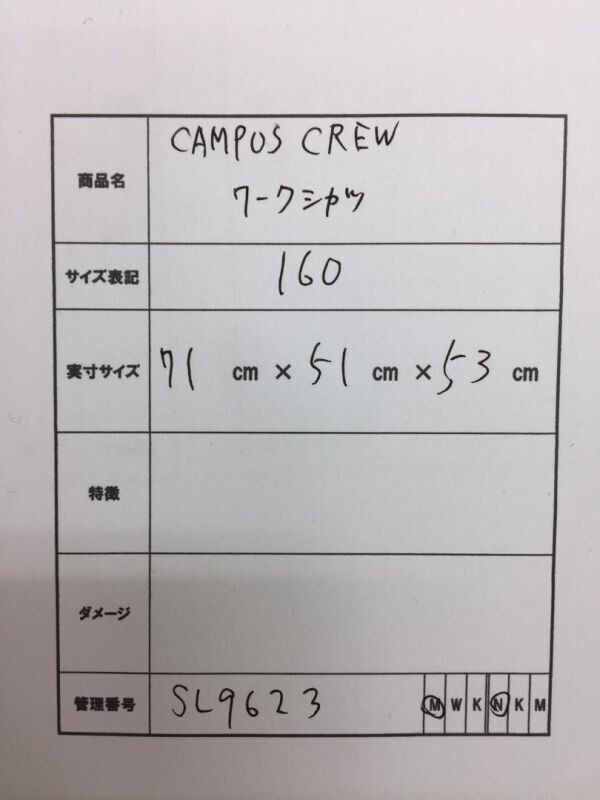 商品名 CAMPUS CREW
ワークシャツ
サイズ表記 160
実寸サイズ 71 cm × 51 cm × 53 cm
特徴
ダメージ
管理番号 SL9623 M W K N K M